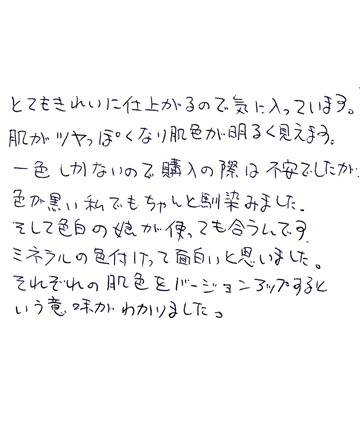 とてもきれいに仕上がるので気に入っています。
肌がツヤっぽくなり肌色が明るく見えます。
一色しかないので購入の際は不安でしたが、
色が黒い私でもちゃんと馴染みました。
そして色白の娘が使っても合うんです。
ミネラルの色付けって面白いと思いました。
それぞれの肌色をバージョンアップすると
いう意味がわかりました。